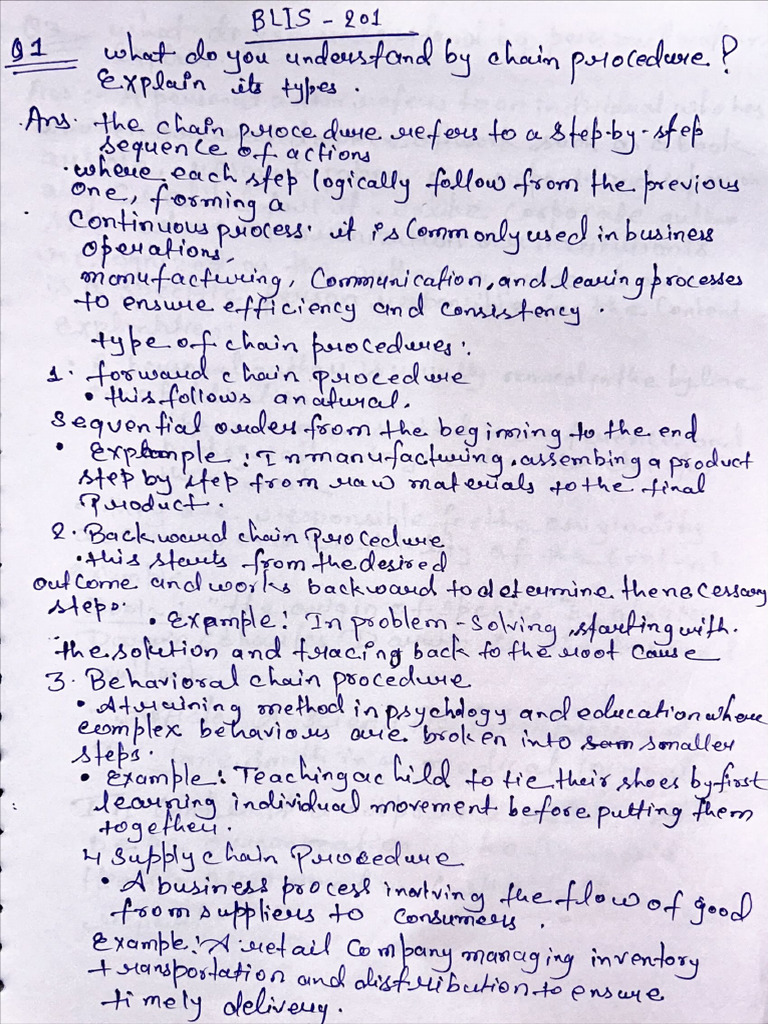 BLIS - 201
Q1 what do you understand by chain procedure?
Explain its types.
Ans. the chain procedure refers to a step-by-step
sequence of actions
where each step logically follow from the previous
one, forming a
continuous process. it is commonly used in business
operations,
manufacturing, communication, and learing processes
to ensure efficiency and consistency.
type of chain procedures:
1. forward chain procedure
• this follows a natural.
Sequential order from the beginning to the end
• Example: In manufacturing, assembing a product
step by step from raw materials to the final
Product.
2. Backward chain Procedure
• this starts from the desired
outcome and works backward to determine the necessary
steps. • Example: In problem-solving, starting with
the solution and tracing back to the root cause
3. Behavioral chain procedure
• A training method in psychology and education where
complex behaviours are broken into smaller
steps.
• Example: Teaching a child to tie their shoes by first
learning individual movement before putting them
together.
4 Supply chain Procedure
• A business process involving the flow of good
from suppliers to consumers.
Example: A retail company managing inventory
transportation and distribution to ensure
timely delivery.